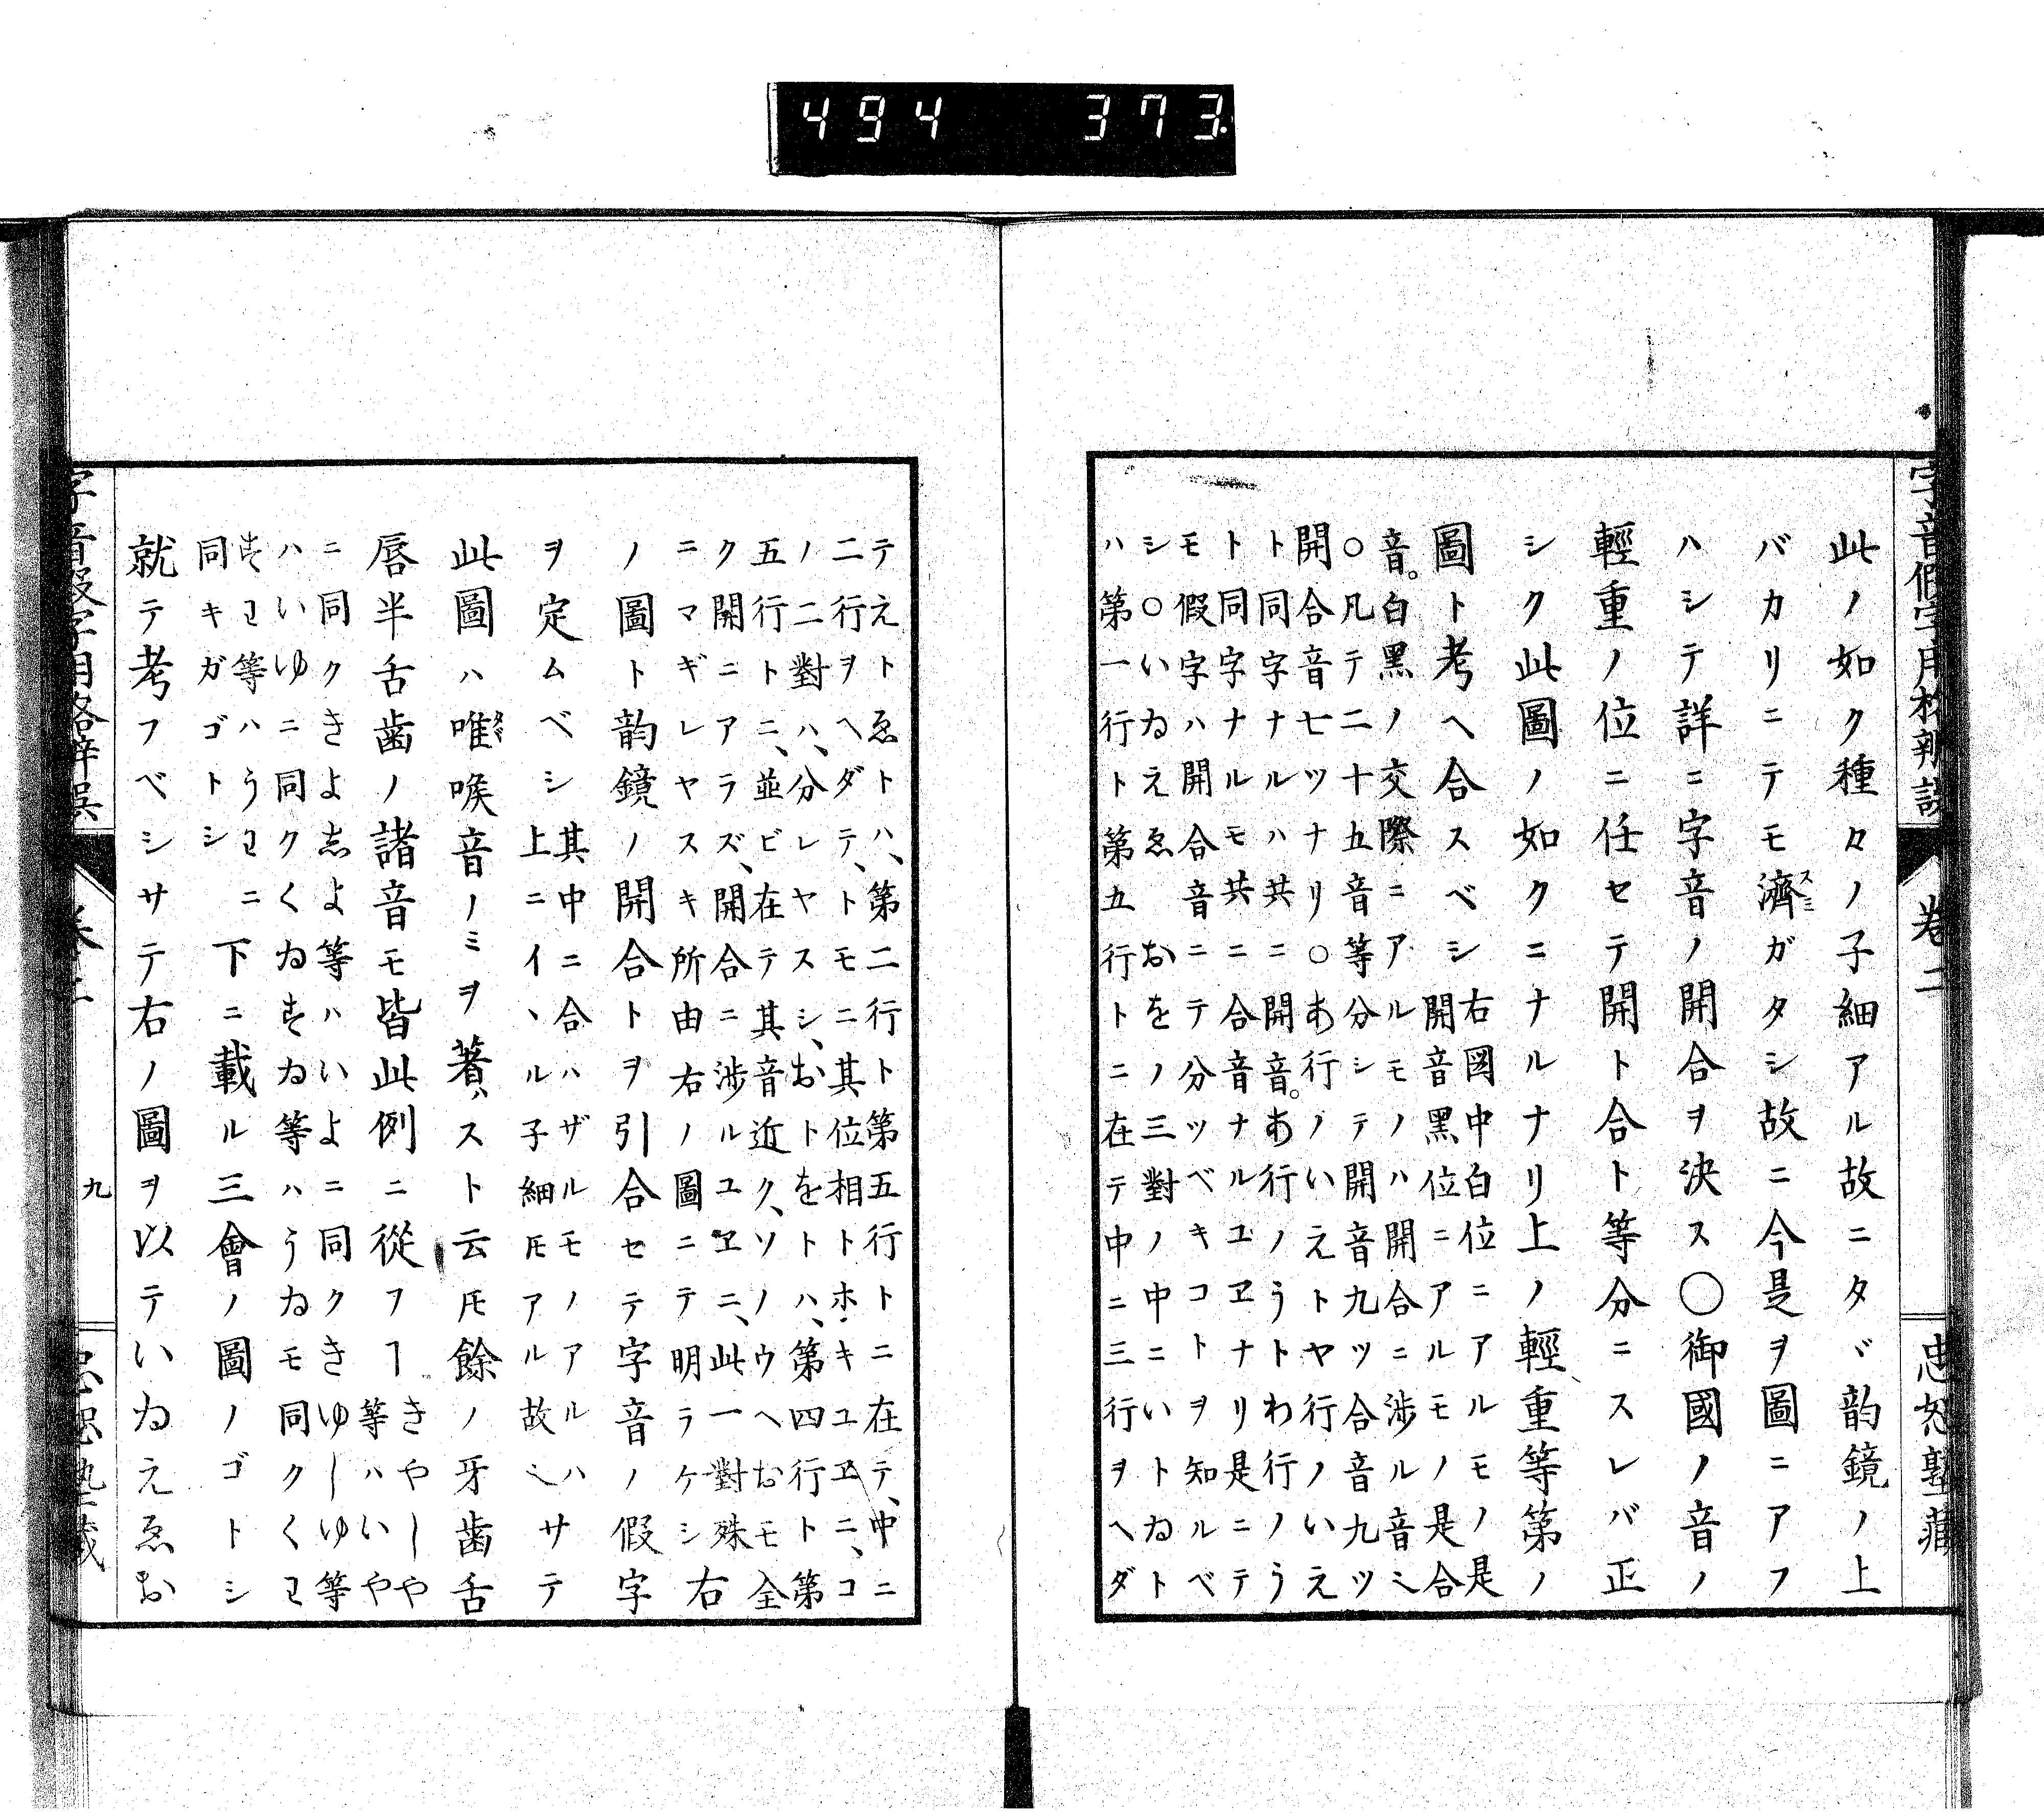 494 373
字音假字用格辨誤
卷二
忠恕塾藏
此ノ如ク種々ノ子細アル故ニタヾ韵鏡ノ上
バカリニテモ濟ガタシ故ニ今是ヲ圖ニアフ
スミ
ハシテ詳ニ字音ノ開合ヲ決ス〇御國ノ音ノ
輕重ノ位ニ任セテ開ト合ト等分ニスレバ正
シク此圖ノ如クニナルナリ上ノ輕重等第ノ
圖ト考ヘ合スベシ
右図中白位ニアルモノ是
開音黑位ニアルモノ是合
音。白黑ノ交際ニアルモノハ開合ニ涉ル音ㇸ
〇凡テ二十五音等分シテ開音九ツ合音九ツ
開合音七ツナリ〇あ行ノいえトヤ行ノいえ
ト同字ナルハ共ニ開音。あ行ノうトわ行ノう
ト同字ナルモ共ニ合音ナルユヱナリ是ニテ
モ假字ハ開合音ニテ分ツベキコトヲ知ルベ
シ〇いゐえゑおをノ三對ノ中ニいトゐト
ハ第一行ト第五行トニ在テ中ニ三行ヲヘダ
テえトゑトハ、第二行ト第五行トニ在テ、中ニ
二行ヲヘダテ、トモニ其位相トホキユヱニ、コ
ノ二對ハ、分レヤスシ、おトをトハ、第四行ト第
五行トニ、並ビ在テ其音近ク、ソノウヘおモ全
ク開ニアラズ、開合ニ涉ルユヱニ、此一對殊
ニマギレヤスキ所由右ノ圖ニテ明ラケシ
右
ノ圖ト韵鏡ノ開合トヲ引合セテ字音ノ假字
ヲ定ムベシ
其中ニ合ハザルモノアルハ
上ニイヽル子細𪜈アル故ㇸ
サテ
此圖ハ唯喉音ノミヲ著ハスト云𪜈餘ノ牙齒舌
唇半舌齒ノ諸音モ皆此例ニ從フヿ
きやしや
等ハいや
ニ同クきよ志よ等ハいよニ同クきゆしゆ等
ハいゆニ同クくゐすゐ等ハうゐモ同クくわ
すわ等ハうわニ
同キガゴトシ
下ニ載ル三會ノ圖ノゴトシ
就テ考フベシサテ右ノ圖ヲ以テいゐえゑお
字音假字用格辨誤
卷二
九
忠恕塾藏